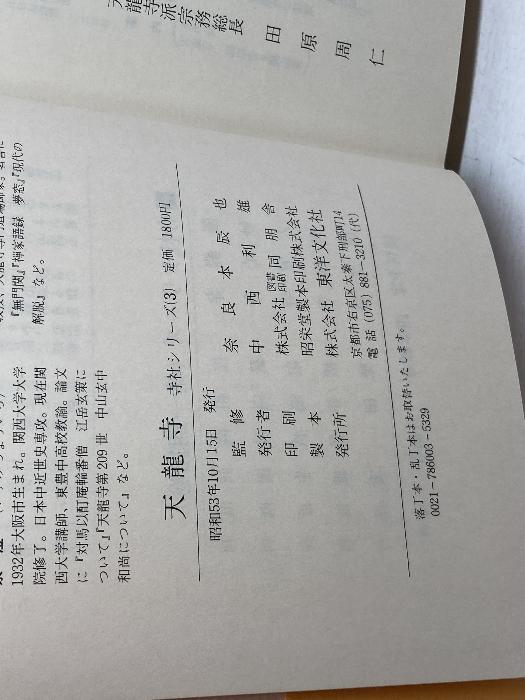 天龍寺派宗務総長
田原周仁
『無門関』『禅家語録 夢窓』『現代の
解脱』など。
1932年大阪市生まれ。関西大学大学
院修了。日本中近世史専攻。現在関
西大学講師、東豊中高校教諭。論文
に『対馬以酊庵輪番僧 江岳玄策に
ついて』『天龍寺第209世 中山玄中
和尚について』など。
天龍寺 寺社シリーズ(3) 定価 1800円
昭和53年10月15日 発行
監修 奈良本辰也
発行者 中西利雄
印刷 株式会社 図書印刷 同朋舎
製本 昭栄堂製本印刷株式会社
発行所 株式会社 東洋文化社
京都市右京区太秦下刑部町14
電話 (075) 881-3210 (代)
落丁本・乱丁本はお取替いたします。
0021-786003-5329